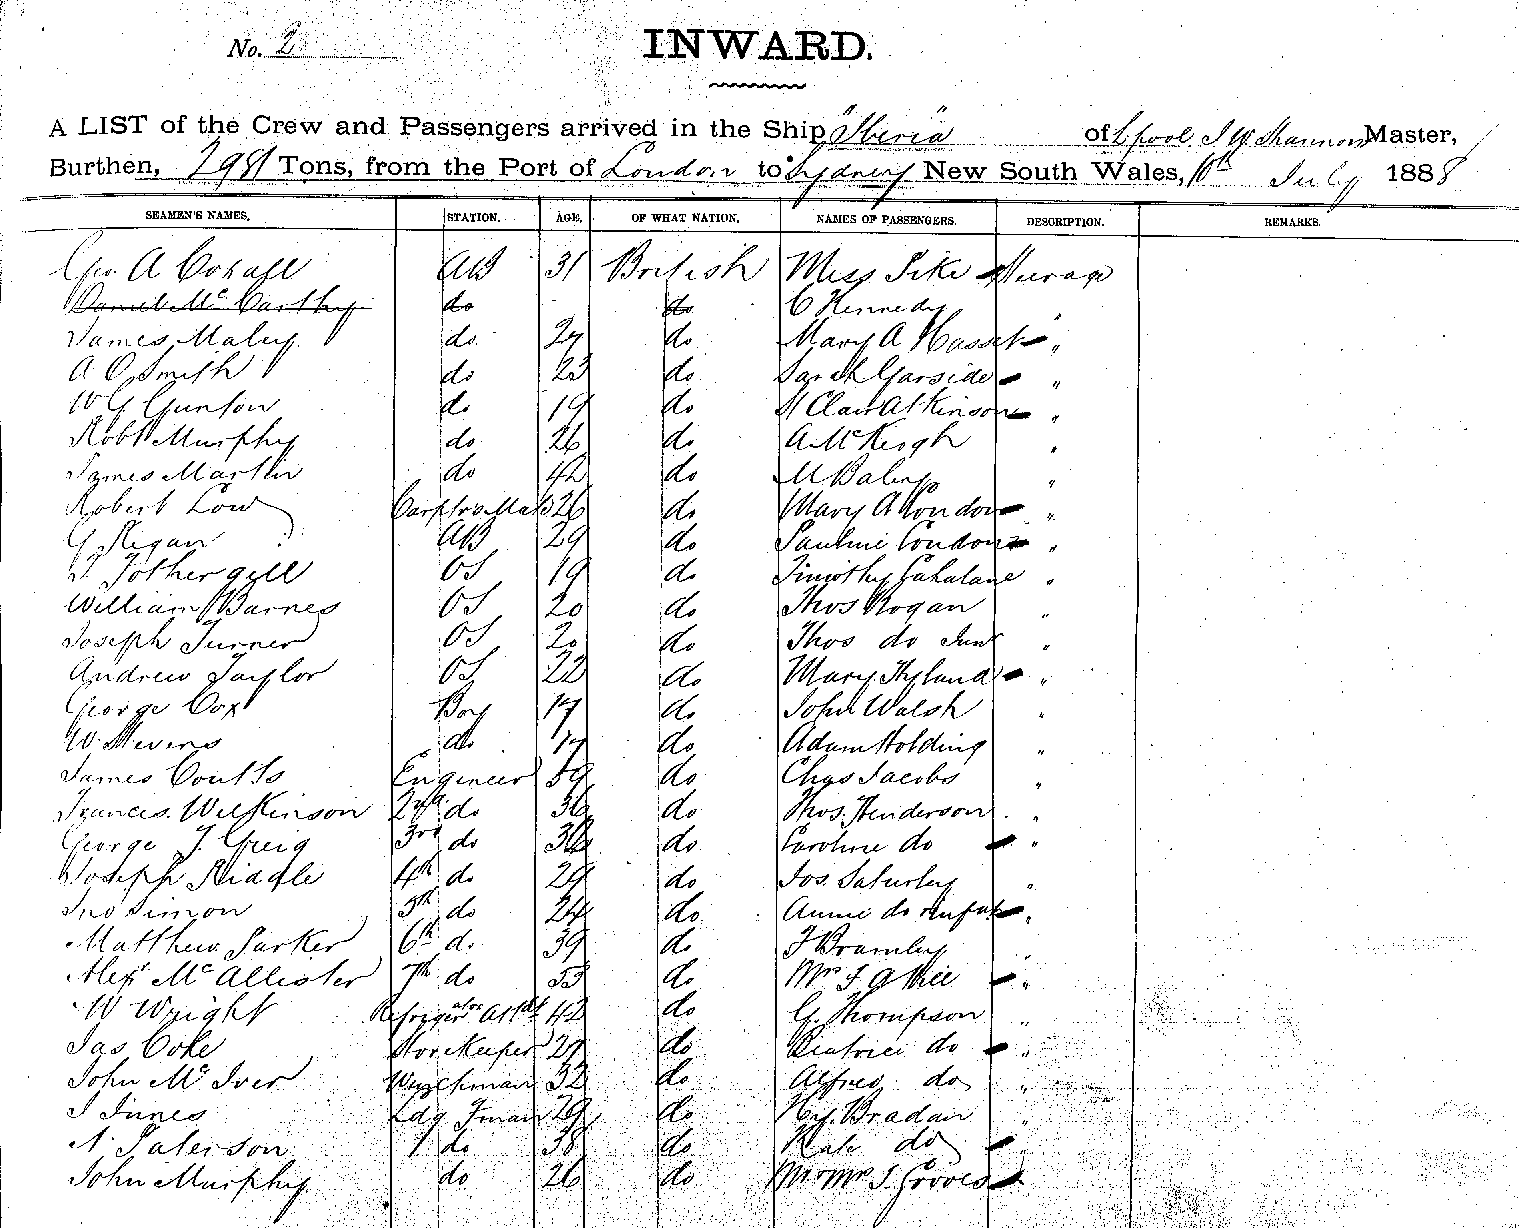 No. 2
INWARD.
A LIST of the Crew and Passengers arrived in the Ship "Iberia" of Lpool, J W Shannon Master,
Burthen, 2981 Tons, from the Port of London to Sydney New South Wales, 10th July 1888
SEAMEN'S NAMES. STATION. AGE. OF WHAT NATION. NAMES OF PASSENGERS. DESCRIPTION. REMARKS.
Geo. A Coxall AB 31 British Miss Pike Steerage
Daniel McCarthy do do C Kennedy "
James Maley do 27 do Mary A Hasset "
A O Smith do 23 do Sarah Garside "
W G Gunton do 19 do St Clair Atkinson "
Robt Murphy do 26 do A McKeigh "
James Martin do 42 do M Baley "
Robert Low Carptrs Mate 26 do Mary A Condon "
G Regan AB 29 do Pauline Condon "
T Fothergill OS 19 do Timothy Cahalane "
William Barnes OS 20 do Thos Hogan "
Joseph Turner OS 20 do Thos do Junr "
Andrew Taylor OS 22 do Mary Hyland "
George Cox Boy 17 do John Walsh "
W. Stevens do 17 do Adam Holding "
James Coutts Engineer 59 do Chas Jacobs "
Frances Wilkinson 2nd do 36 do Thos. Henderson "
George T. Greig 3rd do 36 do Caroline do "
Joseph Riddle 4th do 29 do Jos. Saturley "
Jno Simon 5th do 24 do Annie do infant "
Matthew Parker 6th do 39 do F Bramley "
Alexr McAllister 7th do 53 do Mrs F "
W Wright Refrigerator Attdt 42 do G. Thompson "
Jas Coke Storekeeper 29 do Beatrice do "
John McIver Winchman 32 do Alfred do "
J Innes Ldg Fman 29 do Hy. Bradair "
A. Paterson do 38 do Kate do
John Murphy do 26 do Mr & Mrs J. Grooves